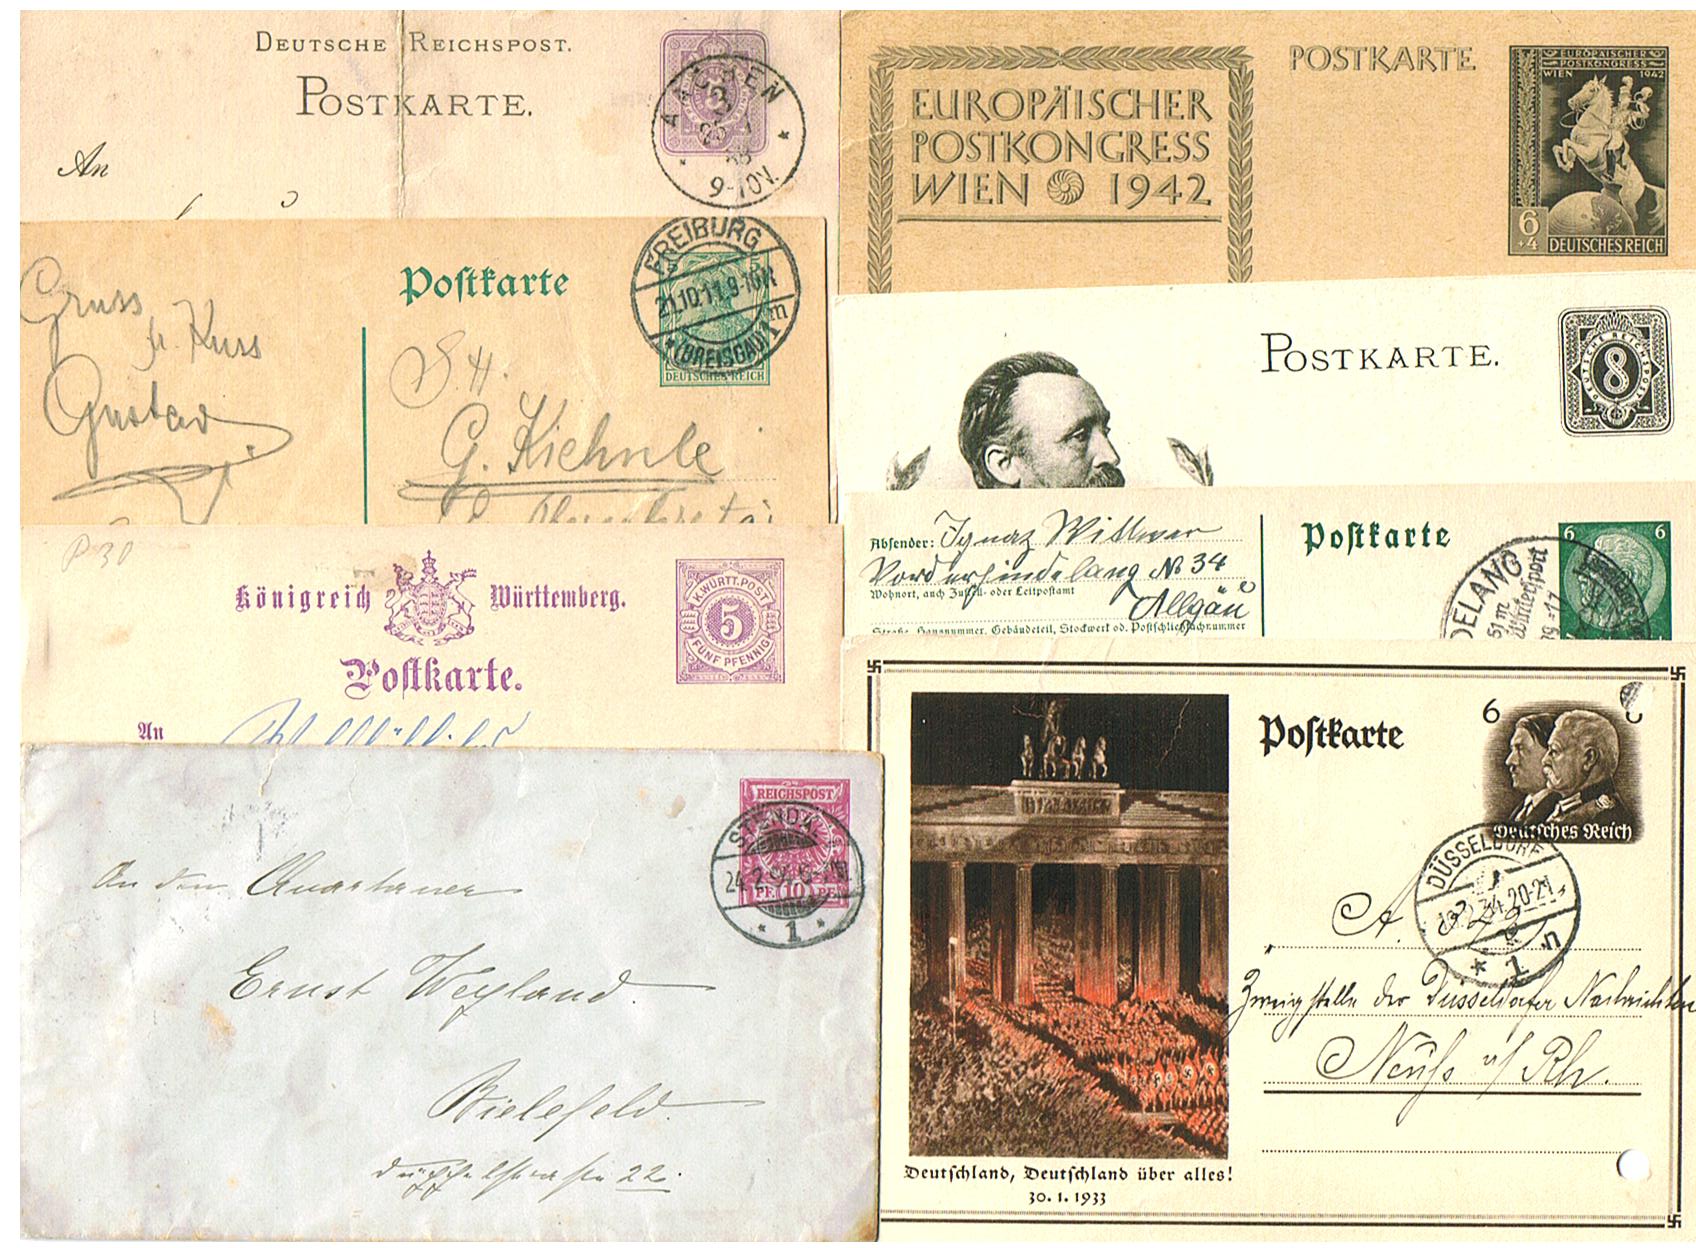 DEUTSCHE REICHSPOST.
POSTKARTE.
An
AACHEN
3
9-10V.
Gruss
Gustav
Postkarte
FREIBURG
21.10.11.9-10V.
(BREISGAU) 1 m
5
DEUTSCHES REICH
S. H.
G. Kiehnle
P 30
Königreich Württemberg.
Postkarte.
An
K.WÜRTT.POST
5
FÜNF PFENNIG
REICHSPOST
PF. 10 PF.
STENDAL
1
An den Quartaner
Ernst Weyland.
Bielefeld.
22.
EUROPÄISCHER
POSTKONGRESS
WIEN 1942
POSTKARTE
EUROPÄISCHER
POSTKONGRESS
WIEN 1942
6
+4
DEUTSCHES REICH
POSTKARTE.
DEUTSCHE REICHSPOST
8
Absender: Ignaz Wittwer
Vorderhindelang № 34
Wohnort, auch Zustell- oder Leitpostamt
Allgäu
Straße, Hausnummer, Gebäudeteil, Stockwerk od. Postschließfachnummer
Postkarte
6 6
DELANG
Wintersport
Postkarte
6
Deutsches Reich
DÜSSELDORF
20-21
1 n
A. 
Zweigstelle der Düsseldorfer Nachrichten
Neuß a/ Rh.
Deutschland, Deutschland über alles!
30. 1. 1933